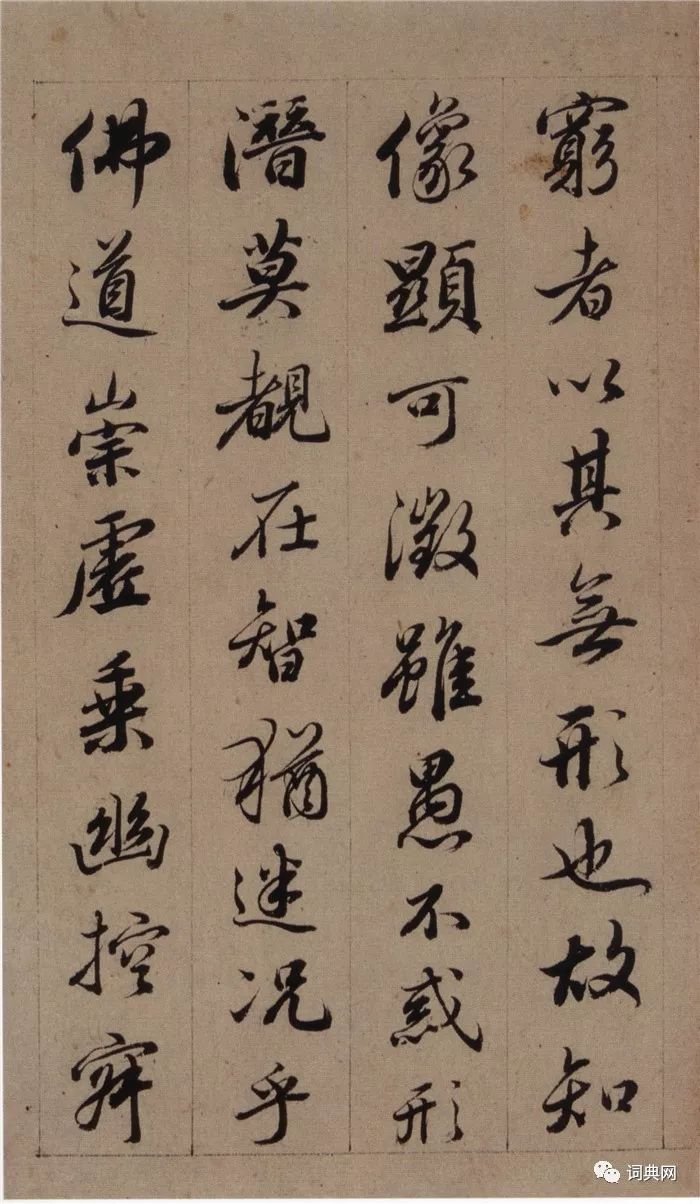 窮者以其無形也故知
像顯可徵雖愚不惑形
潛莫覩在智猶迷况乎
佛道崇虛乗幽控寂
词典网